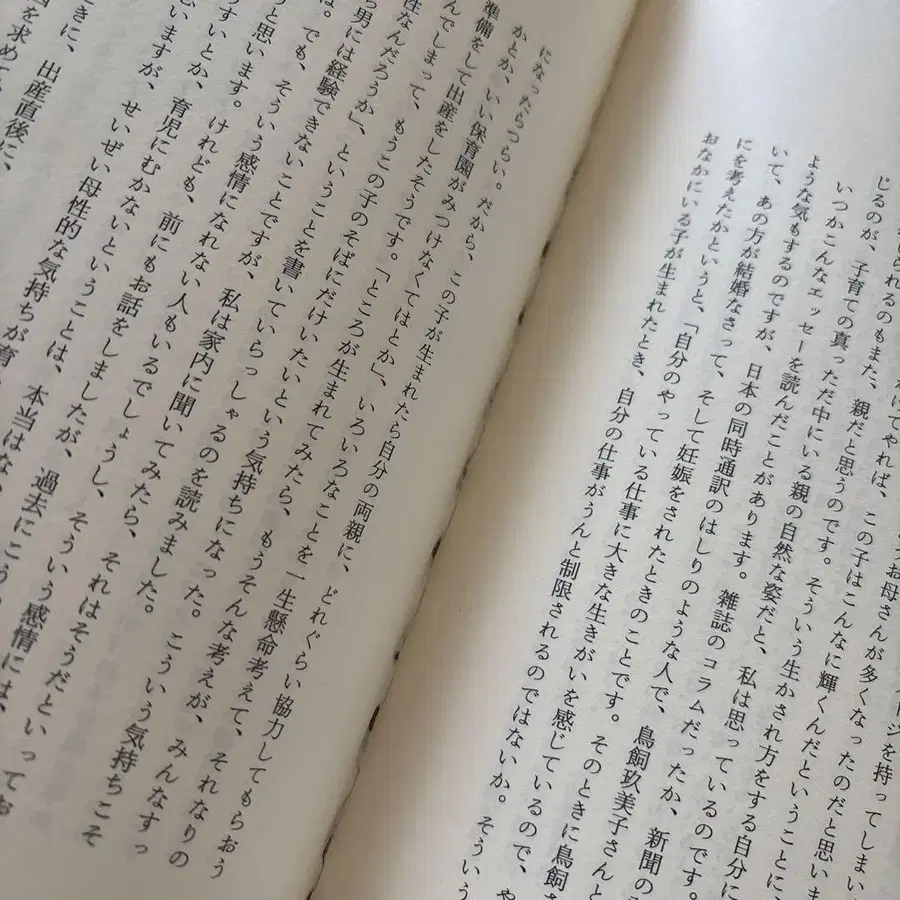 ージを持ってしまい
お母さんが多くなったのだと思いま
かけてやれば、この子はこんなに輝くんだということに、
いられるのもまた、親だと思うのです。そういう生かされ方をする自分に
じるのが、子育ての真っただ中にいる親の自然な姿だと、私は思っているのです。
いつかこんなエッセーを読んだことがあります。雑誌のコラムだったか、新聞の
ような気もするのですが、日本の同時通訳のはしりのような人で、鳥飼玖美子さんと
いて、あの方が結婚なさって、そして妊娠をされたときのことです。そのときに鳥飼さ
にを考えたかというと、「自分のやっている仕事に大きな生きがいを感じているので、や
おなかにいる子が生まれたとき、自分の仕事がうんと制限されるのではないか。そういう
になったらつらい。だから、この子が生まれたら自分の両親に、どれぐらい協力してもらおう
かとか、いい保育園がみつけなくてはとか」、いろいろなことを一生懸命考えて、それなりの
準備をして出産をしたそうです。「ところが生まれてみたら、もうそんな考えが、みんなすっ
んでしまって、もうこの子のそばにだけいたいという気持ちになった。こういう気持ちこそ
性なんだろうか」、ということを書いていらっしゃるのを読みました。
ら男には経験できないことですが、私は家内に聞いてみたら、それはそうだといってお
は。でも、そういう感情になれない人もいるでしょうし、そういう感情には、
うと思います。けれども、前にもお話をしましたが、過去にこう
うすいとか、育児にむかないということは、本当はな
思いますが、せいぜい母性的な気持ちが育
ときに、出産直後に、
を求めて